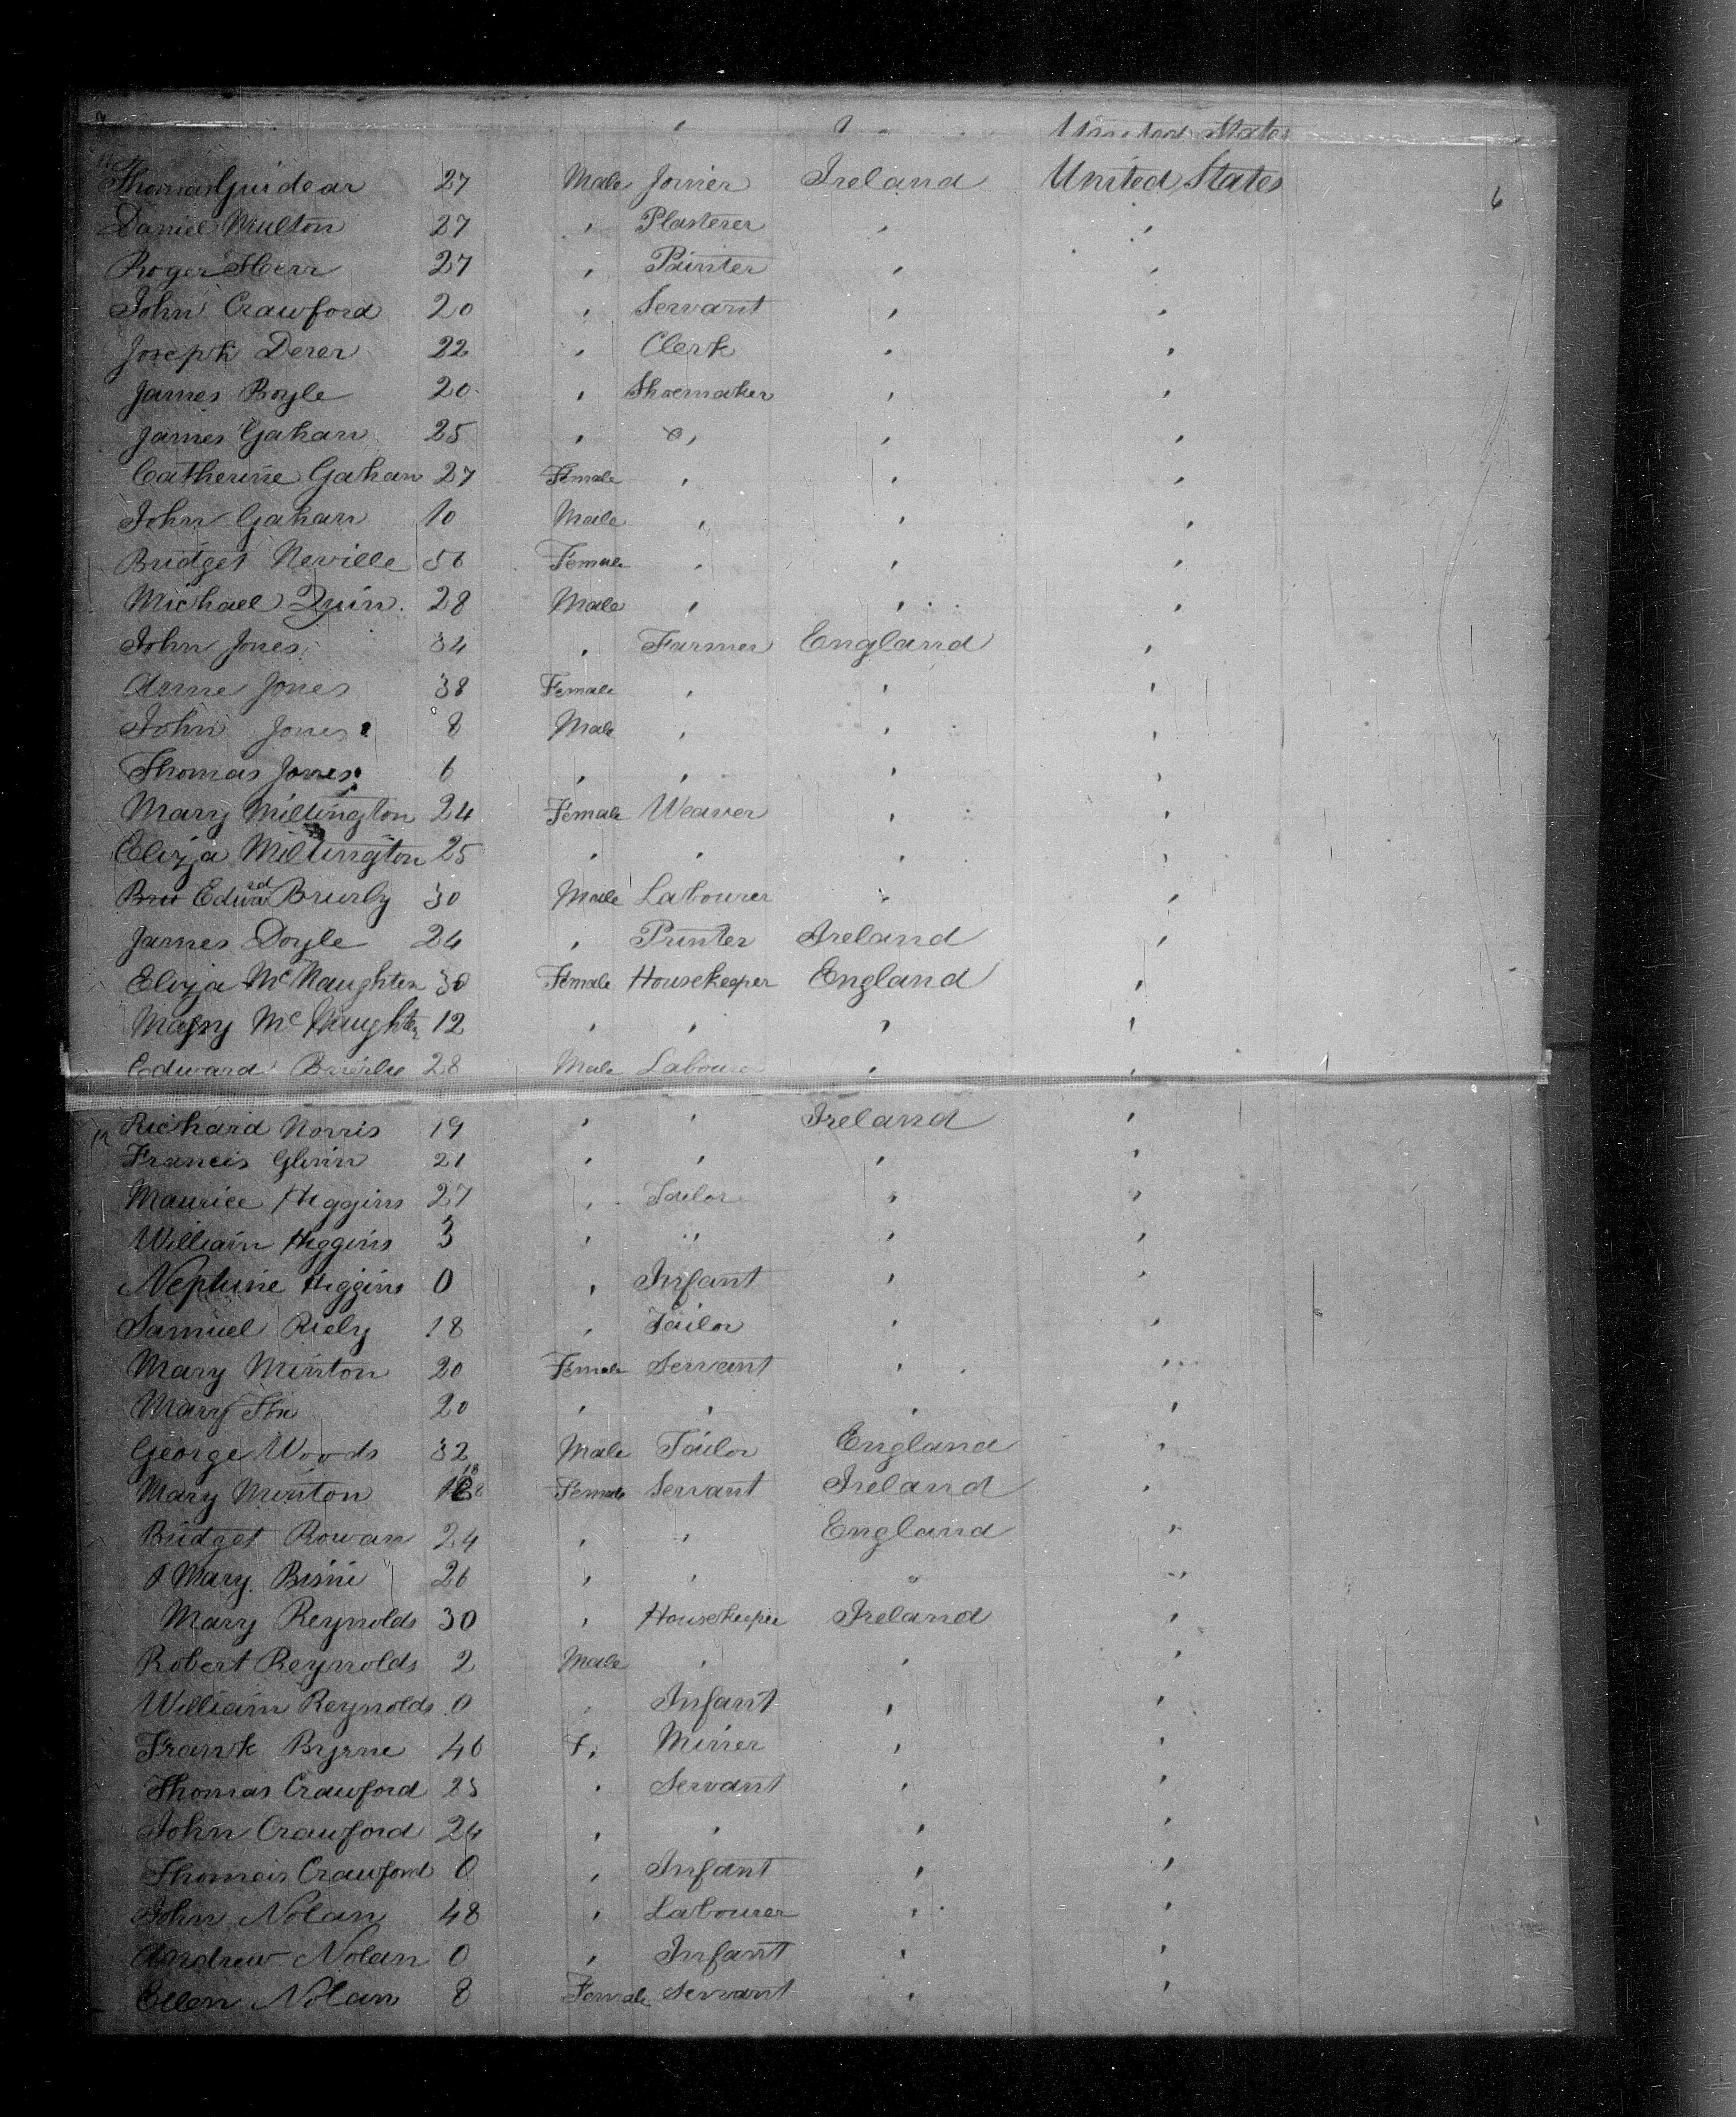 United States
Thomas Guidear 27 Male Joiner Ireland United States 6
Daniel Multon 27 " Plasterer " "
Roger Herr 27 " Painter " "
John Crawford 20 " Servant " "
Joseph Derer 22 " Clerk " "
James Boyle 20 " Shoemaker " "
James Gahan 25 " " " "
Catherine Gahan 27 Female " " "
John Gahan 10 Male " " "
Bridget Neville 56 Female " " "
Michael Quin 28 Male " " "
John Jones 34 " Farmer England "
Anne Jones 38 Female " " "
John Jones 8 Male " " "
Thomas Jones 6 " " " "
Mary Millington 24 Female Weaver " "
Eliza Millington 25 " " " "
Edward Brierly 30 Male Labourer " "
James Doyle 24 " Printer Ireland "
Eliza McNaughten 30 Female Housekeeper England "
Mary McNaughten 12 " " " "
Edward Brierly 28 Male Labourer " "
Richard Norris 19 " " Ireland "
Francis Glinn 21 " " " "
Maurice Higgins 27 " Tailor " "
William Higgins 3 " " " "
Neptune Higgins 0 " Infant " "
Samuel Riely 18 " Tailor " "
Mary Minton 20 Female Servant " "
Mary 20 " " " "
George Woods 32 Male Tailor England "
Mary Minton 18 Female Servant Ireland "
Bridget Rowan 24 " " England "
Mary 26 " " " "
Mary Reynolds 30 " Housekeeper Ireland "
Robert Reynolds 2 Male " " "
William Reynolds 0 " Infant " "
Frank Byrne 46 " Miner " "
Thomas Crawford 25 " Servant " "
John Crawford 24 " " " "
Thomas Crawford 0 " Infant " "
John Nolan 48 " Labourer " "
Andrew Nolan 0 " Infant " "
Ellen Nolan 8 Female Servant " "